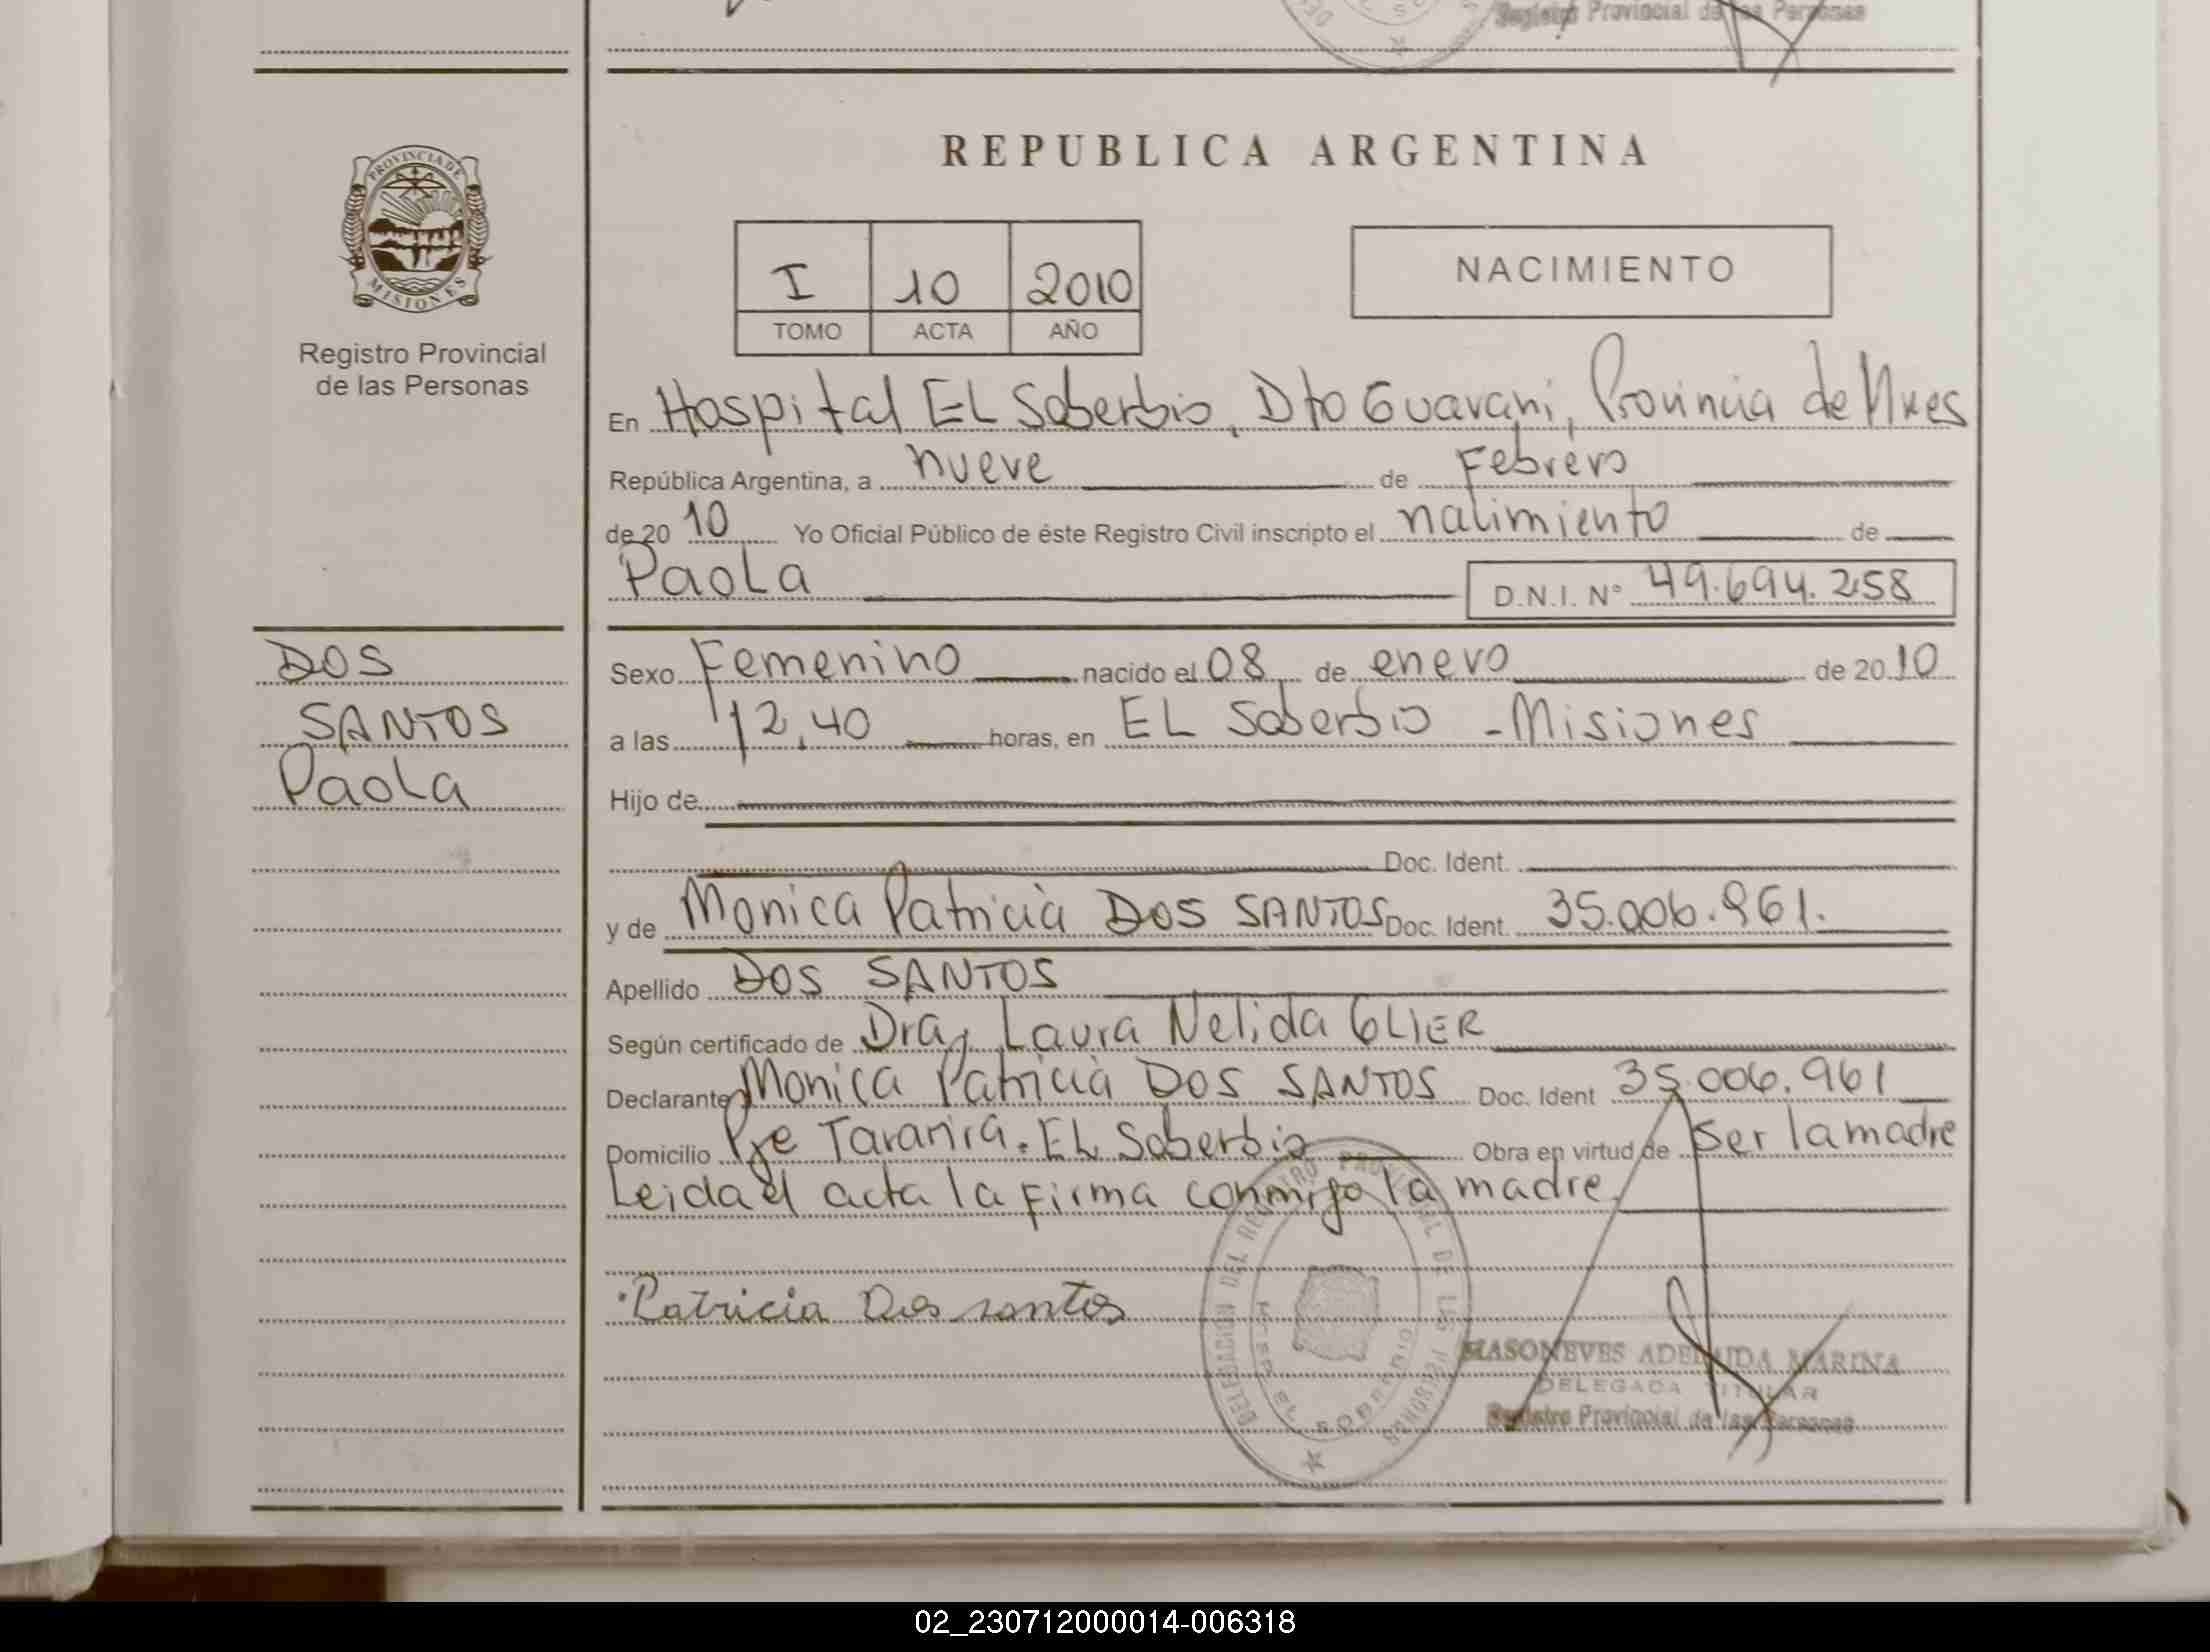 Registro Provincial de las Personas
PROVINCIA DE
MISIONES
Registro Provincial
de las Personas
DOS
SANTOS
Paola
REPUBLICA ARGENTINA
I 10 2010
TOMO ACTA AÑO
NACIMIENTO
En Hospital EL Soberbio, Dto Guarani, Provincia de Mnes
República Argentina, a nueve de Febrero
de 2010 Yo Oficial Público de éste Registro Civil inscripto el nacimiento de
Paola D.N.I. Nº 49.694.258
Sexo Femenino nacido el 08 de enero de 2010
a las 12,40 horas, en EL Soberbio - Misiones
Hijo de
Doc. Ident.
y de Monica Patricia DOS SANTOS Doc. Ident. 35.006.961.
Apellido DOS SANTOS
Según certificado de Dra, Laura Nelida GLIER
Declarante Monica Patricia DOS SANTOS Doc. Ident 35.006.961
Domicilio Pje Taranira. EL Soberbio Obra en virtud de ser la madre
Leida el acta la firma conmigo la madre.
Patricia Dos santos
DELEGACION DEL REGISTRO PROVINCIAL DE LAS PERSONAS
EL SOBERBIO
MASONEVES ADELAIDA MARINA
DELEGADA TITULAR
Registro Provincial de las Personas
02_230712000014-006318